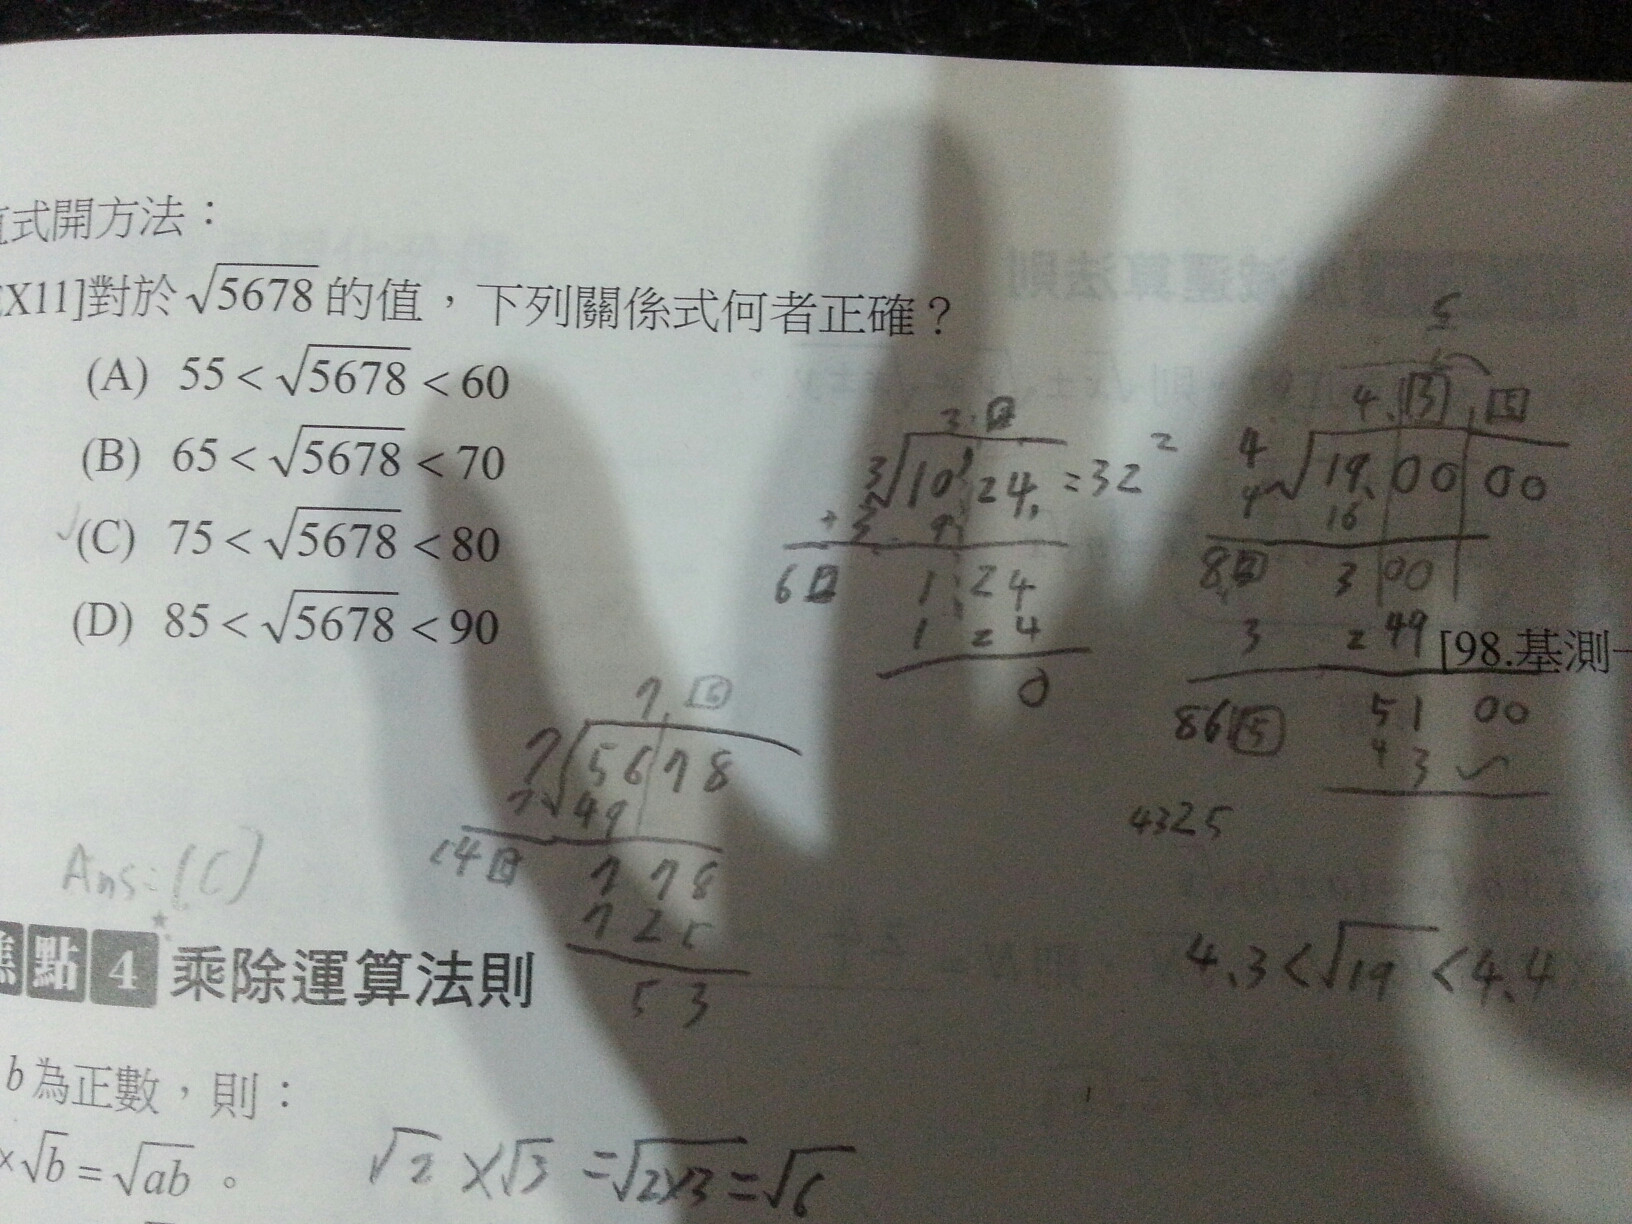 式開方法：
X11]對於√5678的值，下列關係式何者正確？
(A) 55 < √5678 < 60
(B) 65 < √5678 < 70
(C) 75 < √5678 < 80
(D) 85 < √5678 < 90
[98.基測
3
3√10 24 = 32²
+3 9
6 1 24
1 24
0
5
4.3
4√19.00 00
4 16
8 3 00
3 2 49
86 5 51 00
43
4325
4.3<√19<4.4
7
7√5678
7 49
14 7 78
7 25
53
Ans:(C)
點 4 乘除運算法則
b為正數，則：
×√b = √ab 。
√2 × √3 = √2×3 = √6